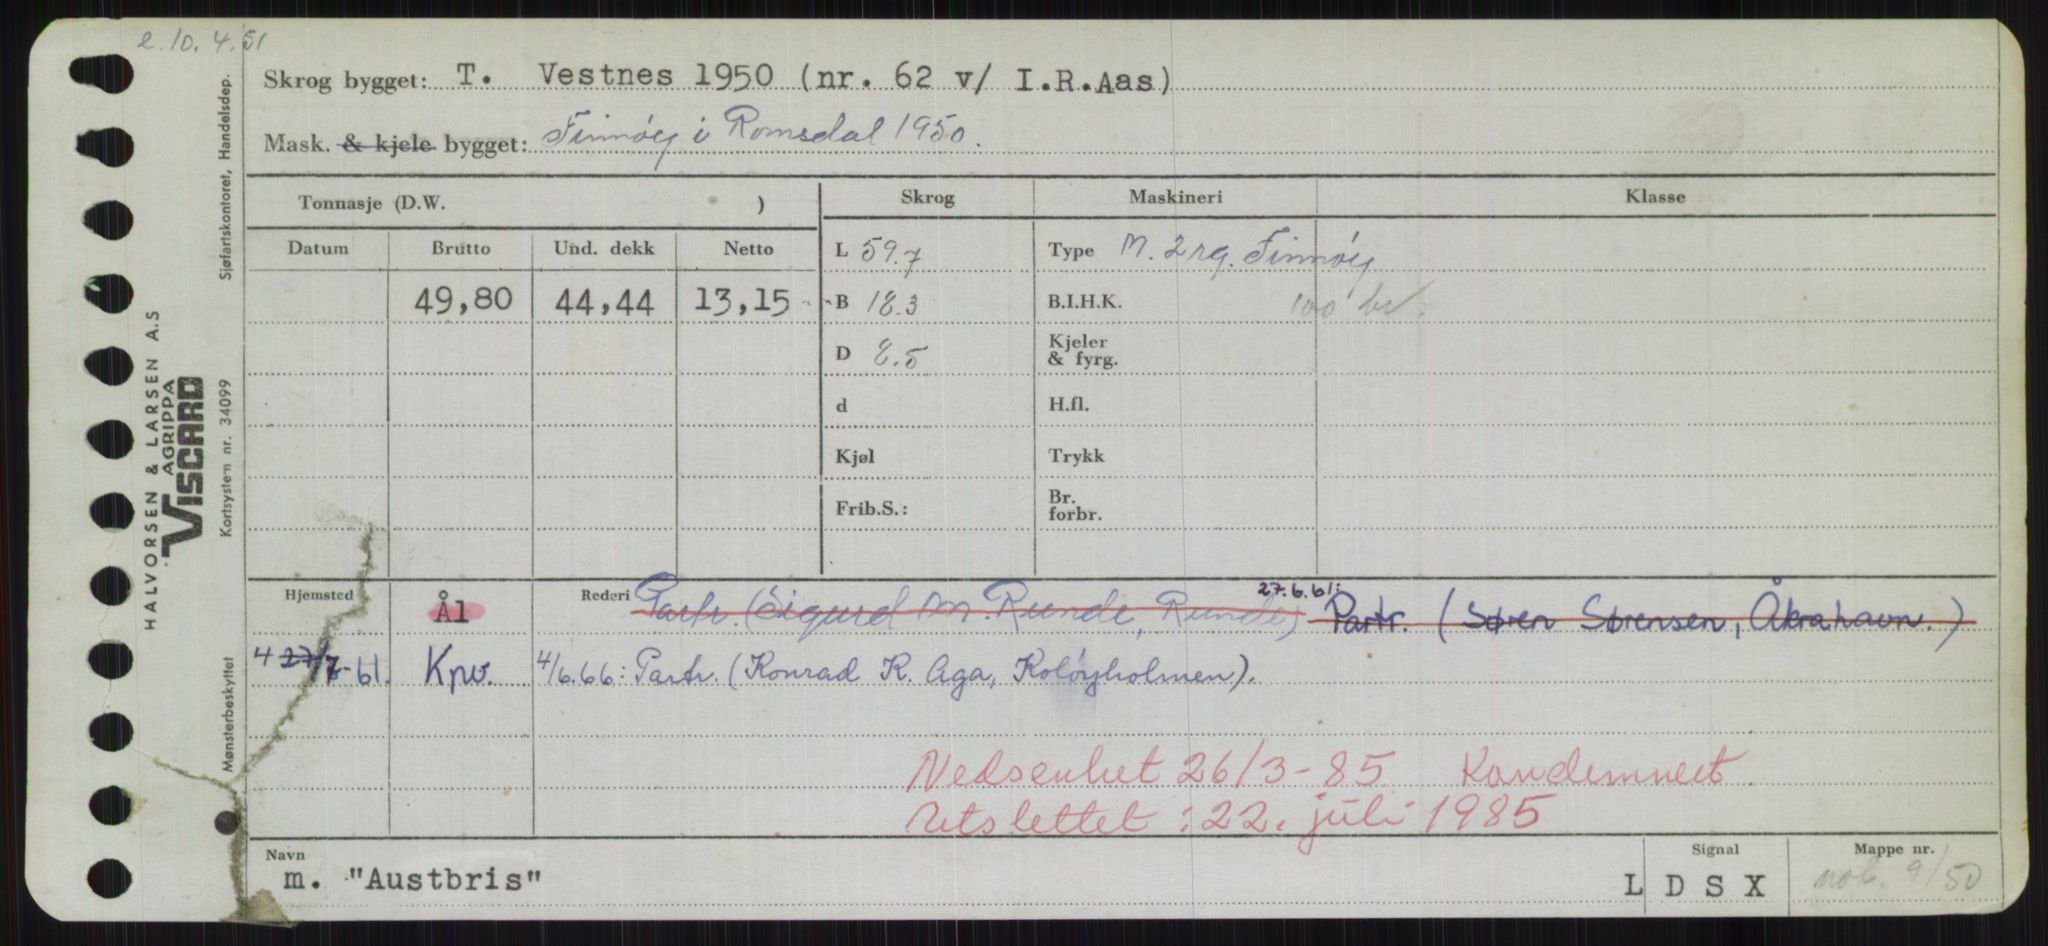 e. 10. 4. 51
Skrog bygget: T. Vestnes 1950 (nr. 62 v/ I.R.Aas)
Mask. & kjele bygget: Finnøy i Romsdal 1950.
Tonnasje (D.W. )
Skrog Maskineri Klasse
Datum Brutto Und. dekk Netto
49,80 44,44 13,15
L 59.7
B 18.3
D 8.5
d
Kjøl
Frib.S.:
Type M. 2 rg. Finnøy
B.I.H.K. 100 br.
Kjeler
& fyrg.
H.fl.
Trykk
Br.
forbr.
Hjemsted Ål Rederi Partr. (Sigurd M. Runde, Runde) 27.6.61: Partr. (Søren Sørensen, Åkrahavn.)
4 27/7-61. Kpv. 4/6.66: Partr. (Konrad K. Aga, Koløyholmen).
Nedsenket 26/3-85 Kondemnert
Utslettet : 22. juli 1985
Navn
m. "Austbris"
Signal
L D S X
Mappe nr.
nob. 9/50
HALVORSEN & LARSEN A.S
AGRIPPA
VISCARD
Mønsterbeskyttet Kortsystem nr. 34099 Sjøfartskontoret, Handelsdep.